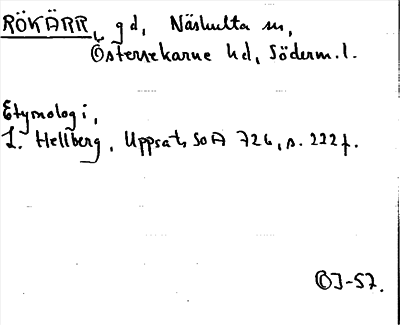 RÖKÄRR, gd, Näshulta sn,
Österrekarne hd, Söderm. l.
Etymologi,
L. Hellberg, Uppsats SoA 726, s. 222 f.
OJ-57.